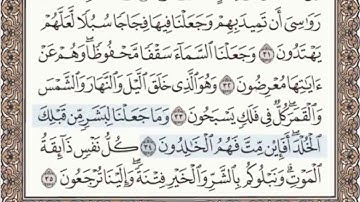 رَوَٰسِىَ أَن تَمِيدَ بِهِمْ وَجَعَلْنَا فِيهَا فِجَاجًا سُبُلًا لَّعَلَّهُمْ
يَهْتَدُونَ ٣١ وَجَعَلْنَا ٱلسَّمَآءَ سَقْفًا مَّحْفُوظًا ۖ وَهُمْ عَنْ
ءَايَٰتِهَا مُعْرِضُونَ ٣٢ وَهُوَ ٱلَّذِى خَلَقَ ٱلَّيْلَ وَٱلنَّهَارَ وَٱلشَّمْسَ
وَٱلْقَمَرَ ۖ كُلٌّ فِى فَلَكٍ يَسْبَحُونَ ٣٣ وَمَا جَعَلْنَا لِبَشَرٍ مِّن قَبْلِكَ
ٱلْخُلْدَ ۖ أَفَإِي۟ن مِّتَّ فَهُمُ ٱلْخَٰلِدُونَ ٣٤ كُلُّ نَفْسٍ ذَآئِقَةُ
ٱلْمَوْتِ ۗ وَنَبْلُوكُم بِٱلشَّرِّ وَٱلْخَيْرِ فِتْنَةً ۖ وَإِلَيْنَا تُرْجَعُونَ ٣٥